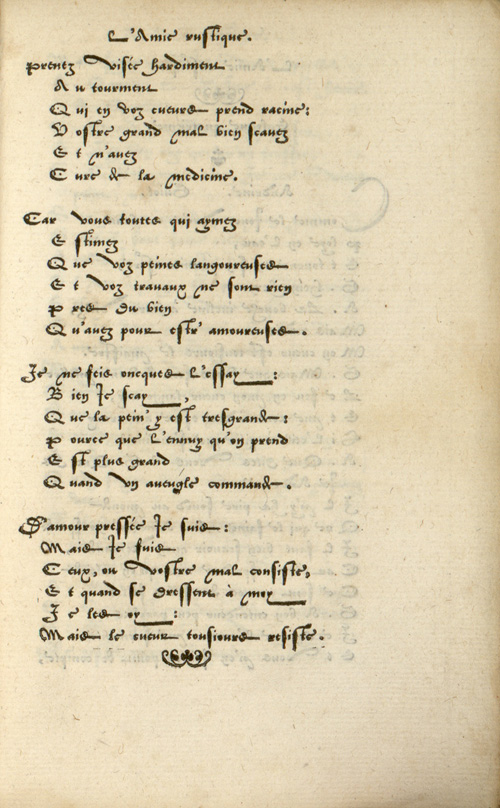 L'Amie rustique.
Prenez visée hardiment
Au tourment
Qui en voz cueurs prend racine:
Vostre grand mal bien scavez
Et n'avez
Cure de la medicine.
Car vous toutes qui aymez
Estimez
Que voz peines langoureuses
Et voz travaux ne sont rien
Pres du bien
Qu'avez pour estr' amoureuses.
Je ne feis oncques l'essay:
Bien Je scay,
Que la pein' y est tresgrande:
Pource que l'ennuy qu'on prend
Est plus grand
Quand un aveugle commande.
D'amour pressée Je suis:
Mais Je fuis
Ceux, ou vostre mal consiste,
Et quand se dressent à moy
Je les oy:
Mais le cueur tousiours resiste.